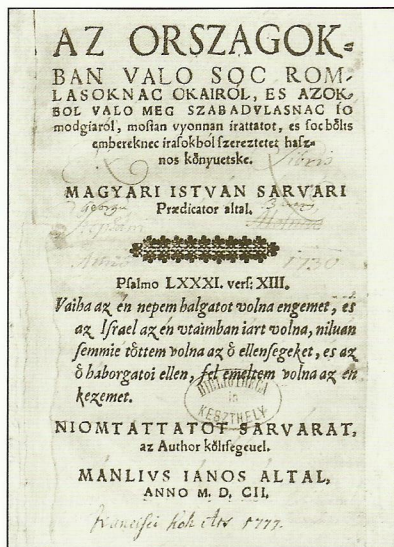 AZ ORSZAGOK-
BAN VALO SOC ROM-
LASOKNAC OKAIRÓL, ES AZOK-
BOL VALO MEG SZABADVLASNAC IO
modgiaról, mostan vyonnan irattatot, es soc bőlts
embereknec irasokból szereztetet hasz-
nos kőnyuetske.
Libris
MAGYARI ISTVAN SARVARI
Prædicator altal.
1730
Psalmo LXXXI. vers: XIII.
Vaiha az én nepem halgatot volna engemet, es
az Israel az én vtaimban iárt volna, niluan
semmie tőttem volna az ő ellensegeket, es az
ő haborgatoi ellen, fel emeltem volna az én
kezemet.
BIBLIOTHECA
in
KESZTHELY
NIOMTATTATOT SARVARAT,
az Author kőltsegeuel.
MANLIVS IÁNOS ALTAL,
ANNO M. D. CII.
1777.